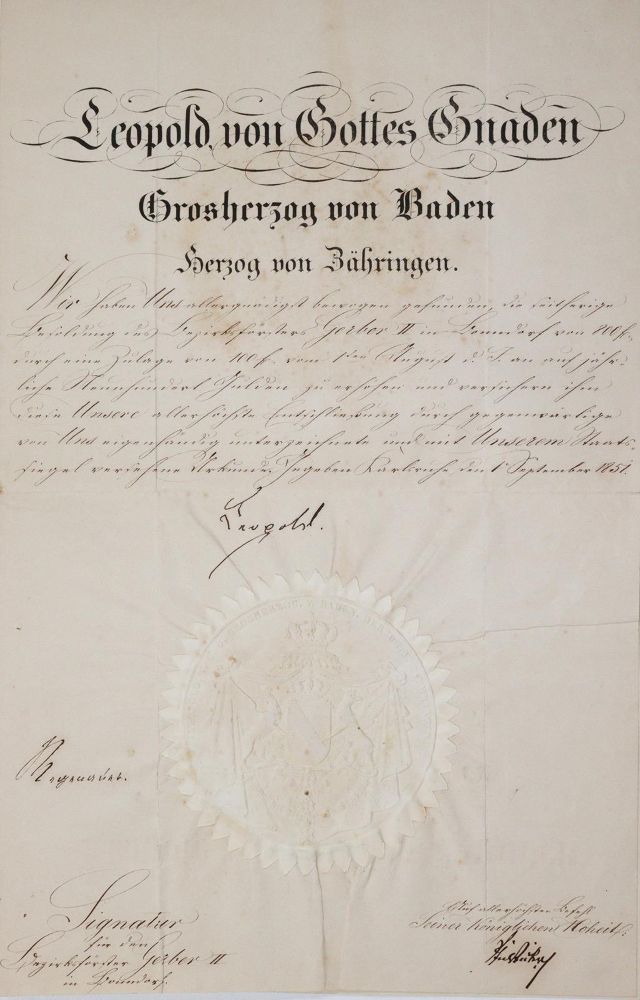 Leopold, von Gottes Gnaden
Grosherzog von Baden
Herzog von Zähringen.
Wir haben Uns allergnädigst bewogen gefunden, die seitherige
Besoldung des Bezirksförsters Gerber II in Bonndorf von 800 f.
durch eine Zulage von 100 f. vom 1ten August d. J. an auf jähr-
liche Neunhundert Gulden zu erhöhen und versichern ihm
diese Unsere allerhöchste Entschließung durch gegenwärtige
von Uns eigenhändig unterzeichnete und mit Unserem Staats-
siegel versehene Urkunde. Gegeben Karlsruhe, den 1t September 1851.
Leopold.
Regenauer.
Signatur
für den
Bezirksförster Gerber II
in Bonndorf.
Auf allerhöchsten Befehl
Seiner Königlichen Hoheit: